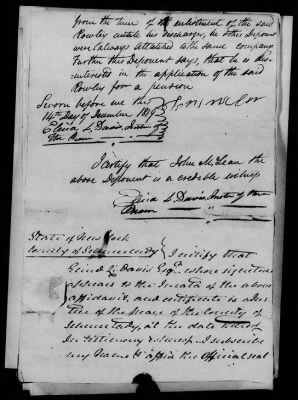 from the time of the enlistment of the said
Rowley untill his discharge, he & this Deponent
were always attatched to the same company
Further this Deponent says, that he is dis-
interested in the application of the said
Rowley for a pension
Sworn before me this
14th Day of December 1819
the Peace
I certify that John McLean the
above Deponent is a credible witness
L Davis, Justice of the
Peace
State of New York
County of Schenectady I certify that
L. Davis Esqr. whose signature
appears to the Jurata of the above
affidavit, and certificate is a Jus
tice of the Peace of the County of
Schenectady, at the date thereof
In testimony whereof I subscribe
my Name & affix the Official seal